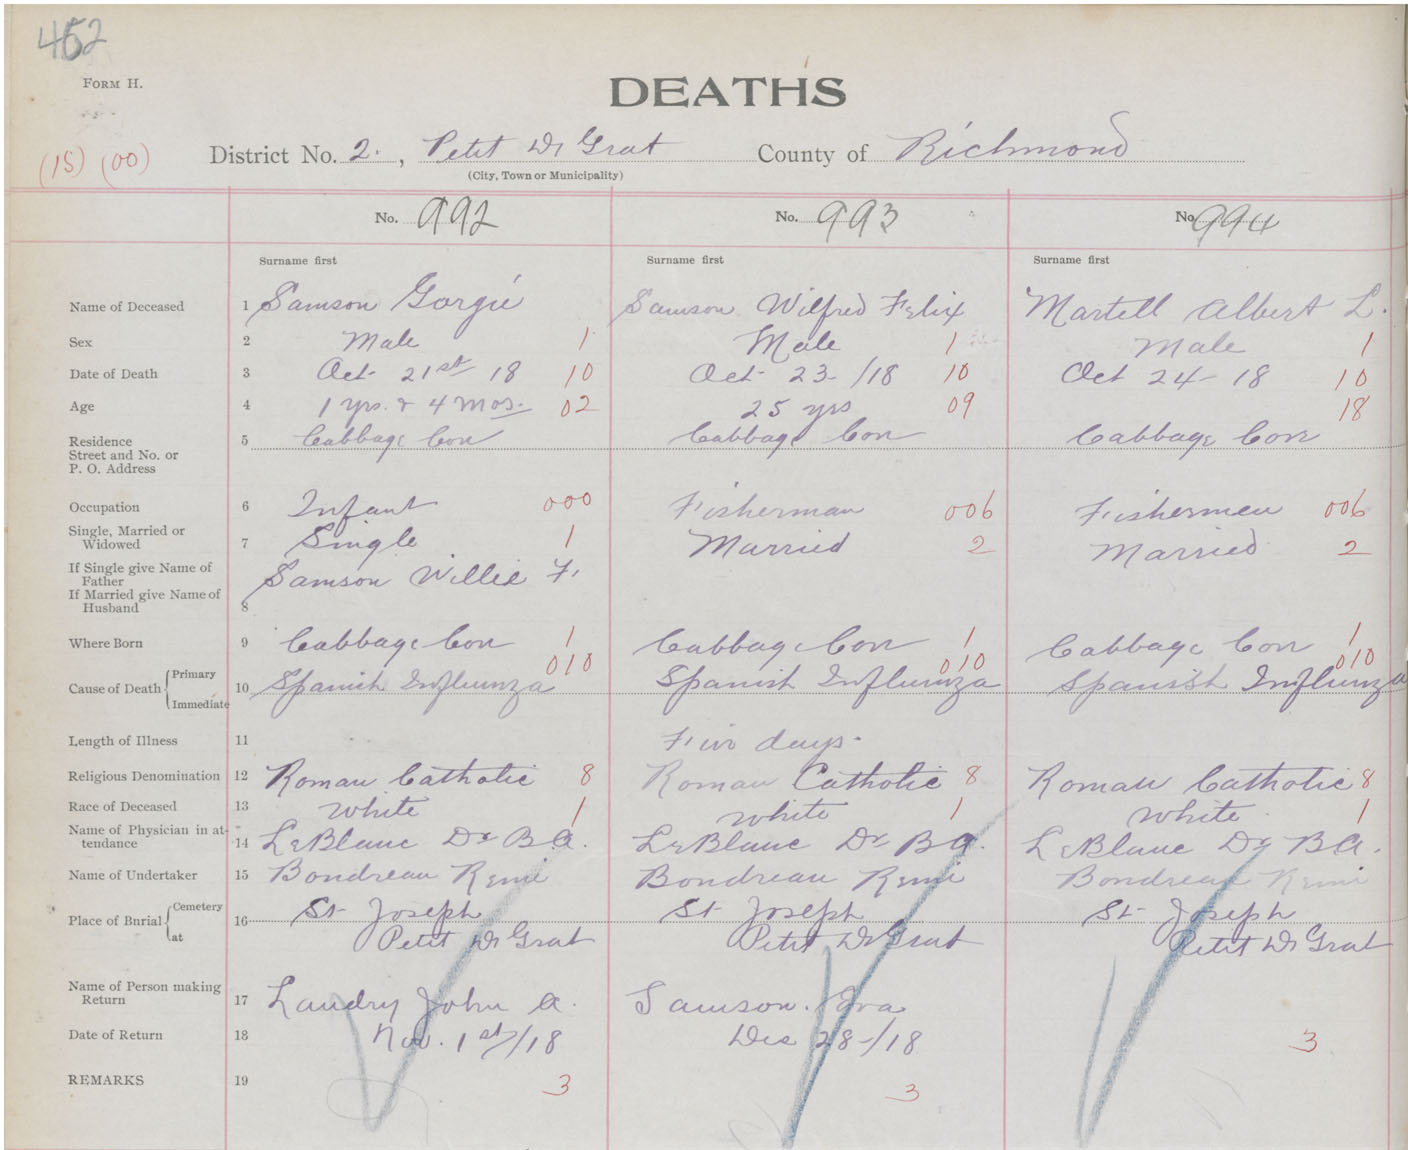 452
FORM H.
DEATHS
(15) (00)
District No. 2. , Petit De Grat County of Richmond
(City, Town or Municipality)
No. 992 No. 993 No. 994
Surname first Surname first Surname first
Name of Deceased 1 Samson Gorgie Samson Wilfred Felix Martell Albert L.
Sex 2 Male 1 Male 1 Male 1
Date of Death 3 Oct 21st 18 10 Oct 23 /18 10 Oct 24 - 18 10
Age 4 1 yrs. & 4 mos. 02 25 yrs 09 18
Residence 5 Cabbage Cove Cabbage Cove Cabbage Cove
Street and No. or
P. O. Address
Occupation 6 Infant 000 Fisherman 006 Fishermen 006
Single, Married or
Widowed 7 Single 1 Married 2 Married 2
If Single give Name of
Father Samson Willie F.
If Married give Name of
Husband 8
Where Born 9 Cabbage Cove 1 Cabbage Cove 1 Cabbage Cove 1
010 010 010
Cause of Death Primary 10 Spanish Influenza Spanish Influenza Spanish Influenza
Immediate
Length of Illness 11 Five days.
Religious Denomination 12 Roman Catholic 8 Roman Catholic 8 Roman Catholic 8
Race of Deceased 13 White 1 White 1 White 1
Name of Physician in at-
tendance 14 LeBlanc Dr B A. LeBlanc Dr B A. LeBlanc Dr B A.
Name of Undertaker 15 Boudreau Remi Boudreau Remi Boudreau Remi
Place of Burial Cemetery 16 St Joseph St Joseph St Joseph
at Petit De Grat Petit De Grat Petit De Grat
Name of Person making
Return 17 Landry John A. Samson. Eva
Date of Return 18 Nov. 1st/18 Dec 28-/18 3
REMARKS 19 3 3